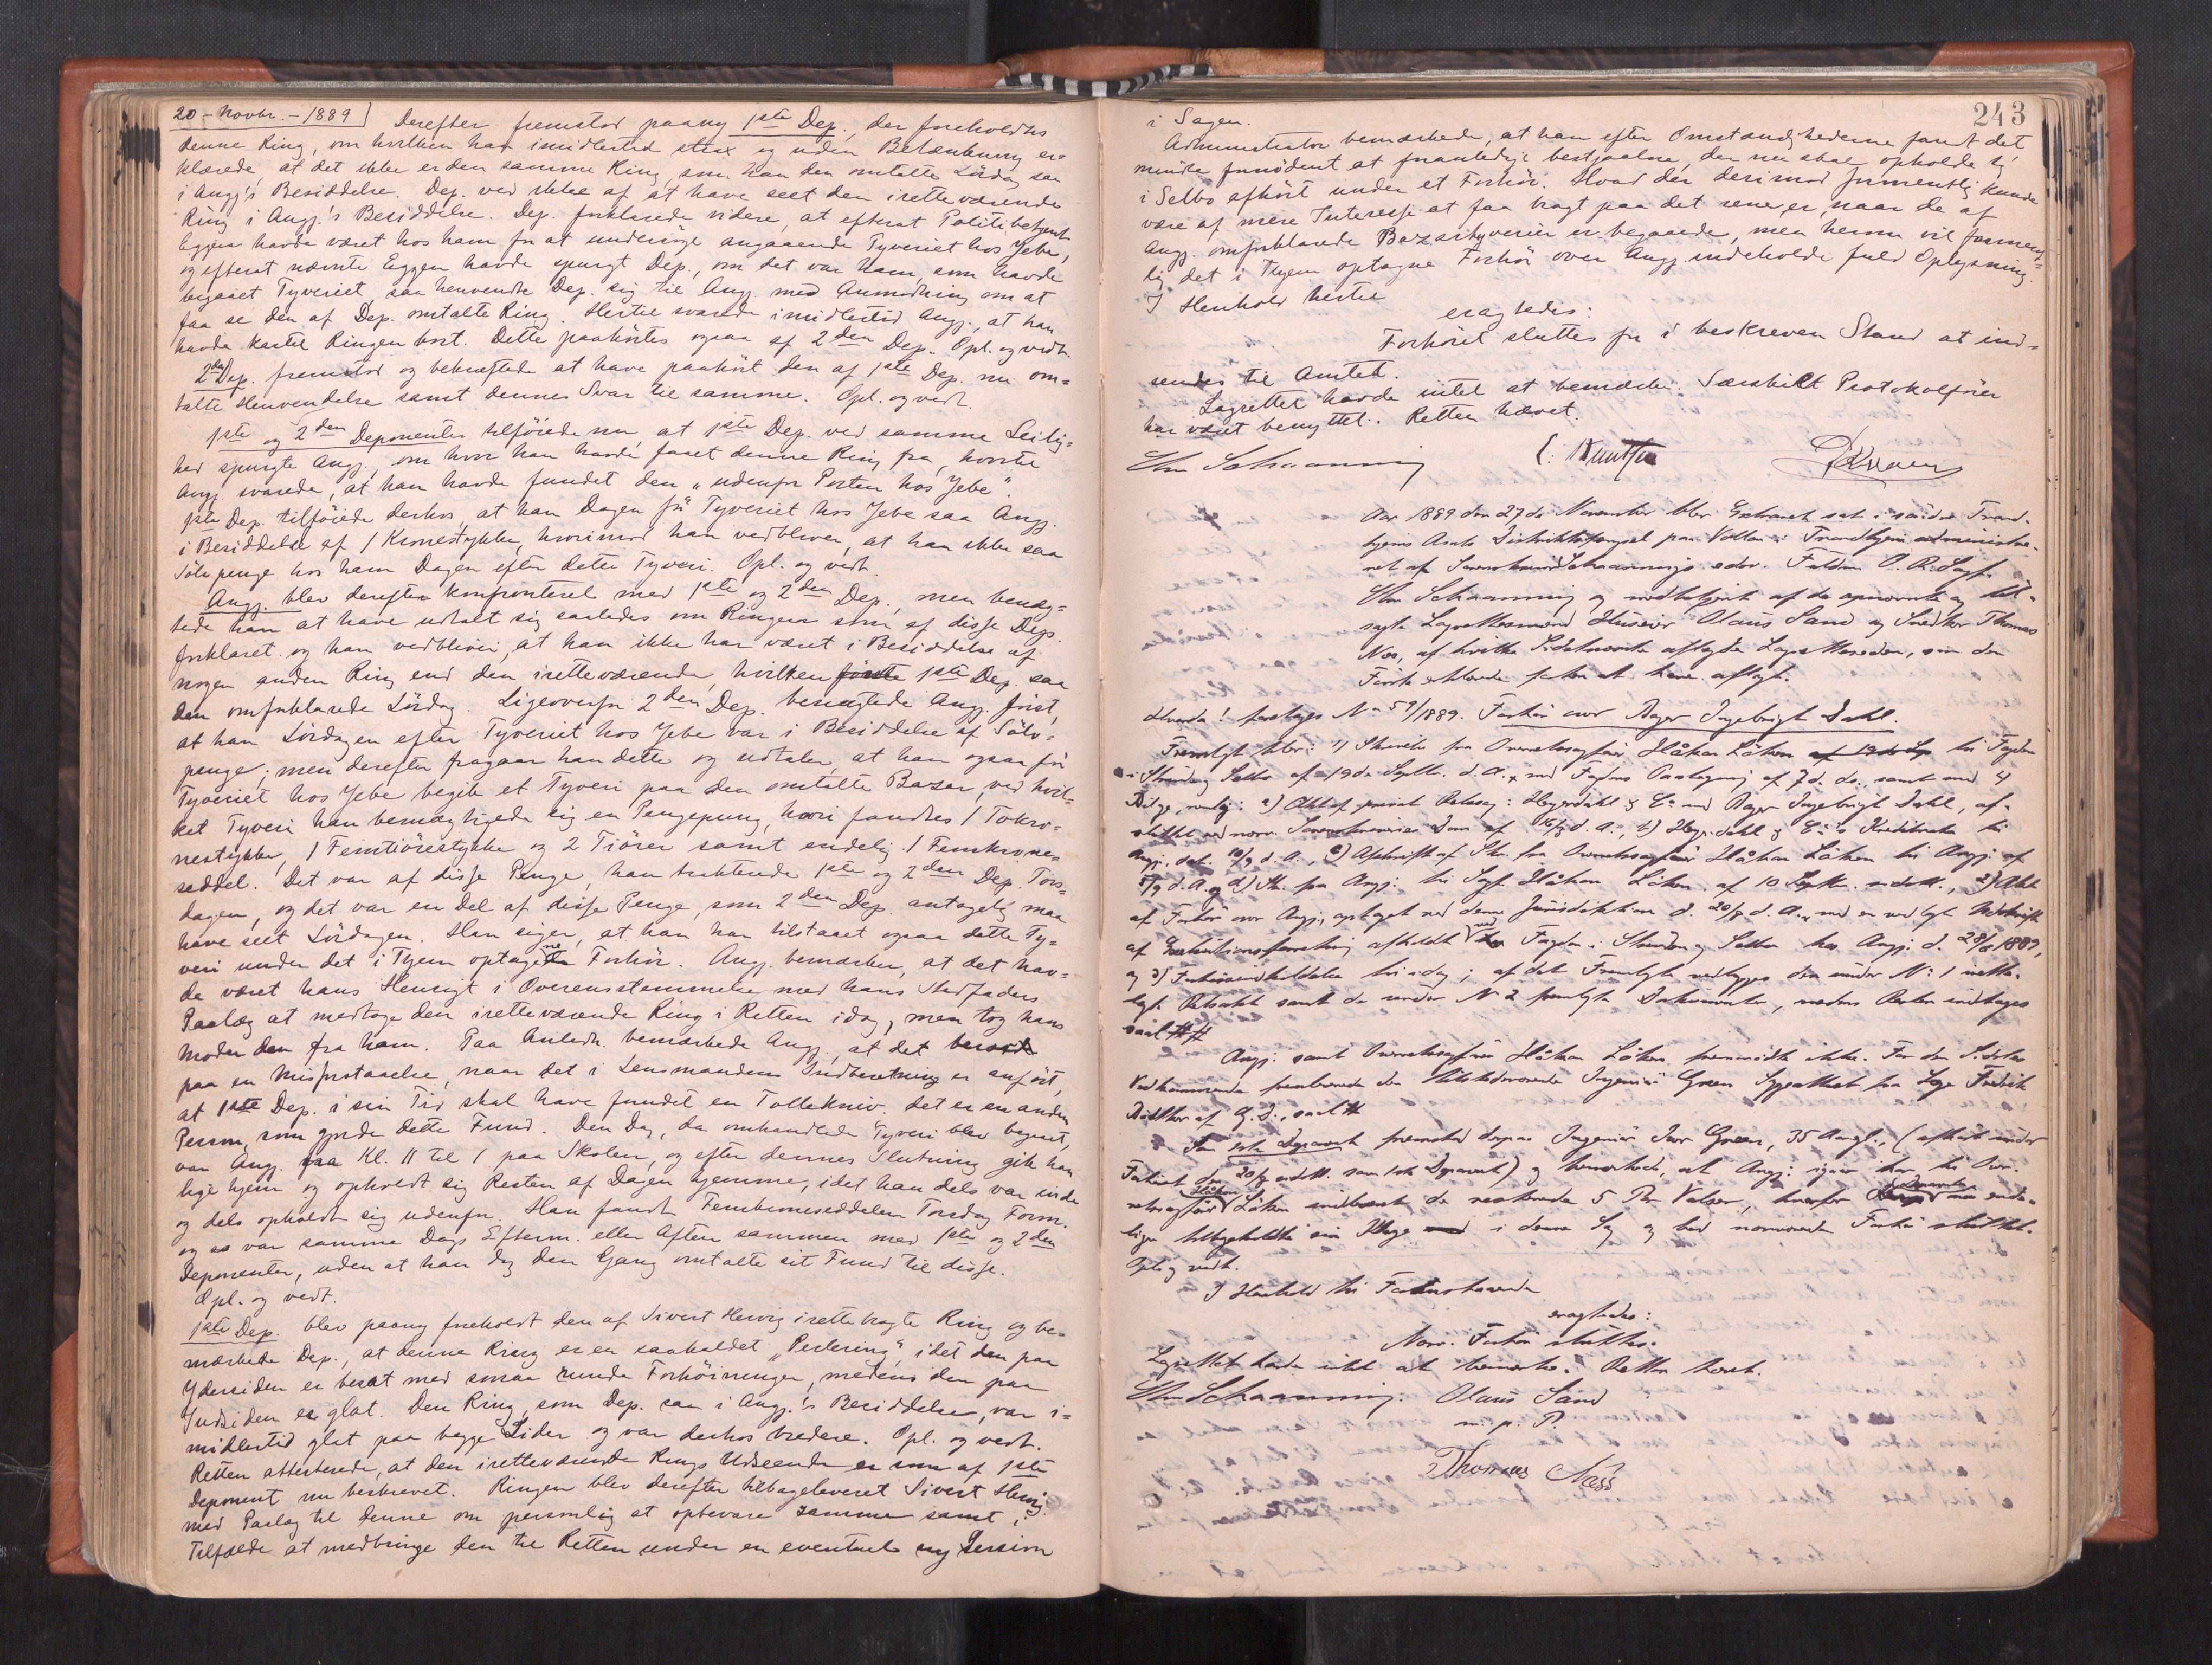 20 - Novbr. - 1889
Derefter fremstod paany 1ste Dep., der foreholdtes
denne Ring, om hvilken han imidlertid strax og uden Betænkning er=
klærede, at det ikke er den samme Ring, som han den omtalte Lördag saa
i Angj's Besiddelse. Dep. ved ikke af at have seet den iretteværende
Ring i Angj.'s Besiddelse. Dep. forklarede videre, at efterat Politibetjent
Eggen havde været hos ham for at undersöge angaaende Tyveriet hos Jebe,
og efterat nævnte Eggen havde spurgt Dep., om det var ham, som havde
begaaet Tyveriet, saa henvendte Dep. sig til Angj. med Anmodning om at
faa se den af Dep. omtalte Ring. Hertil svarede imidlertid Angj., at han
havde kastet Ringen bort. Dette paahörtes ogsaa af 2den Dep. Opl. og vedt.
2den Dep. fremstod og bekræftede at have paahört den af 1ste Dep. nu om=
talte Henvendelse samt dennes Svar til samme. Opl. og vedt.
1ste og 2den Deponenter tilföiede nu, at 1ste Dep. ved samme Leilig=
hed spurgte Angj., om hvor han havde faaet denne Ring fra, hvortil
Angj. svarede, at han havde fundet den „udenfor Porten hos Jebe".
1ste Dep. tilföiede derhos, at han Dagen för Tyveriet hos Jebe saa Angj.
i Besiddelse af 1 Kronestykke, hvorimod han vedbliver, at han ikke saa
Sölvpenge hos ham Dagen efter dette Tyveri. Opl. og vedt.
Angj. blev derefter konfronteret med 1ste og 2den Dep., men benæg=
tede han at have udtalt sig saaledes om Ringen som af disse Dep.
forklaret og han vedbliver, at han ikke har været i Besiddelse af
nogen anden Ring end den iretteværende, hvilken förste 1ste Dep. saa
den omforklarede Lördag. Ligeoverfor 2den Dep. benægtede Angj. först,
at han Lördagen efter Tyveriet hos Jebe var i Besiddelse af Sölv=
penge; men derefter fragaar han dette og udtaler, at han ogsaa för
Tyveriet hos Jebe begik et Tyveri paa den omtalte Bazar, ved hvil=
ket Tyveri han bemægtigede sig en Pengepung, hvori fandtes 1 Tokro=
nestykke, 1 Femtiörestykke og 2 Tiörer samt endelig 1 Femkrone=
seddel. Det var af disse Penge, han trakterede 1ste og 2den Dep. Tors=
dagen, og det var en Del af disse Penge, som 2den Dep. antagelig maa
have seet Lördagen. Han siger, at han har tilstaaet ogsaa dette Ty=
veri under det i Thjem optagne Forhör. Angj. bemærker, at det hav=
de været hans Hensigt i Overensstemmelse med hans Stedfaders
Paalæg at medtage den iretteværende Ring i Retten idag, men tog hans
Moder den fra ham. Paa Anledn. bemærkede Angj., at det beroede
paa en Misforstaaelse, naar det i Lensmandens Indberetning er anfört,
at 1ste Dep. i sin Tid skal have fundet en Tollekniv. Det er en anden
Person, som gjorde dette Fund. Den Dag, da omhandlede Tyveri blev begaaet,
var Angj. fra Kl. 11 til 1 paa Skolen, og efter dennes Slutning gik han
lige hjem og opholdt sig Resten af Dagen hjemme, idet han dels var inde
og dels opholdt sig udenfor. Han fandt Femkroneseddelen Torsdag Form.
og var samme Dags Efterm. eller Aften sammen med 1ste og 2den
Deponenter, uden at han dog den Gang omtalte sit Fund til disse.
Opl. og vedt.
1ste Dep. blev paany foreholdt den af Sivert Hervig irettebragte Ring og be=
mærkede Dep., at denne Ring er en saakaldet „Perlering", idet den paa
Ydersiden er besat med smaa runde Forhöininger, medens den paa
Indsiden er glat. Den Ring, som Dep. saa i Angj.'s Besiddelse, var i=
midlertid glat paa begge Sider og var derhos bredere. Opl. og vedt.
Retten attesterede, at den iretteværende Rings Udseende er som af 1ste
Deponent nu beskrevet. Ringen blev derefter tilbageleveret Sivert Hervig
med Paalæg til denne om personlig at opbevare samme samt i
Tilfælde at medbringe den til Retten under en eventuel ny Session
243
i Sagen.
Administrator bemærkede, at han efter Omstændighederne fandt det
mindre fornödent at foranledige bestjaalne, der nu skal opholde sig
i Selbo afhört under et Forhör. Hvad der derimod formentlig kunde
være af mere Interesse at faa bragt paa det rene er, naar de af
Angj. omforklarede Bazartyverier er begaaede, men herom vil formeng=
lig det i Thjem optagne Forhör over Angj. indeholde fuld Oplysning.
I Henhold hertil
eragtedes:
Forhöret sluttes for i beskreven Stand at ind=
sendes til Amtet.
Lagrettet havde intet at bemærke. Særskilt Protokolförer
har været benyttet. Retten hævet.
Chr Schaanning
Aar 1889 den 27de November blev Extraret sat i söndre Trond-
hjems Amts Distriktsfængsel paa Vollan i Trondhjem administre-
ret af Sorenskriver Schaannings edsv. Fuldm. O. R. Sagf.
Chr Schaanning og medbetjent af de opnævnte og til-
sagte Lagrettesmænd Huseier Olaus Sand og Snedker Thomas
Næs, af hvilke Sidstnævnte aflagde Lagretteseden, som den
Förste erklærede för at have aflagt.
Hvorda! foretages No 59/1889. Forhör over Bager Ingebrigt Dahl.
Fremlagt blev: 1) Skrivelse fra Overretssagförer Håkon Löken til Fogden
i Strinden og Selbo af 19de Septbr. d. A., med Fogdens Paategning af 7 d. ds., samt med 4
Bilage, nemlig: a) Akt af privat Retssag: Heyerdahl & Co mod Bager Ingebrigt Dahl, af-
sluttet ved norv. Sorenskriveries Dom af 16/5 d. A., b) Heyerdahl & Co's Kreditnota til
Angj. dat. 10/9 d. A., c) Afskrift af Skr. fra Overretssagförer Håkon Löken til Angj. af
5/9 d. A. og d) Skr. fra Angj. til Sagf. Håkon Löken af 10 Septbr. sidstl., 2) Akt
af Forhör over Angj., optaget ved denne Jurisdiktion d. 20/8 d. A., med en vedlagt Udskrift
af Exekutionsforretning afholdt ved Fogden i Strinden og Selbo hos Angj. d. 28/6 1889,
og 3) Forhörsindkaldelse til idag; af det Fremlagte vedlægges den under No 1 irette-
lagte Retsakt samt de under No 2 fremlagte Dokumenter, medens Resten indtages
saal. ##
Angj. samt Overretssagförer Håkon Löken fremmödte ikke. For den Sidstes
Vedkommende fremleverede den tilstedeværende Ingeniör Green Sygeattest fra Læge Fredrik
af G. D., saal. #
Som 1ste Deponent fremstod derpaa Ingeniör Iver Green, 35 Aar gl., (afhört under
Forhöret den 20/8 sidstl. som 1ste Deponent) og bemærkede, at Angj. igaar har til Over-
retssagförer Håkon Löken indbetalt de resterende 5 Par Valser, hvorfor Deponenten nu ende-
ligen tilbagekaldte sin Klage i denne Sag og bad nærværende Forhör sluttet.
Opl. og vedt.
I Henhold til Foranstaaende
eragtedes:
Nærv. Forhör sluttes.
Lagrettet havde intet at bemærke. Retten hævet.
Chr Schaanning. Olaus Sand
m. p. P.
Thomas Næss